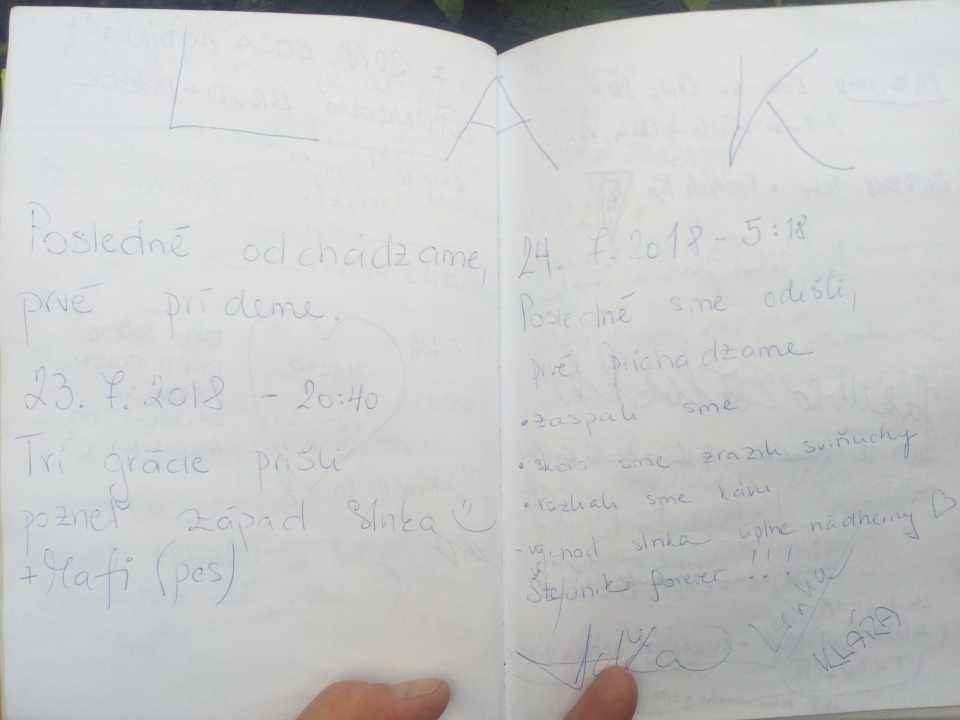 L A K
Posledné odchádzame,
prvé prídeme.
23. 7. 2018 - 20:40
Tri grácie prišli
pozrieť západ slnka
+ Mafi (pes)
24. 7. 2018 - 5:18
Posledné sme odišli,
prvé prichádzame
• zaspali sme
• skoro sme zrazili sviňuchy
• rozliali sme kávu
- východ slnka úplne nádherný
Štefánik forever !!!
Lenka
Adža
KLÁRA